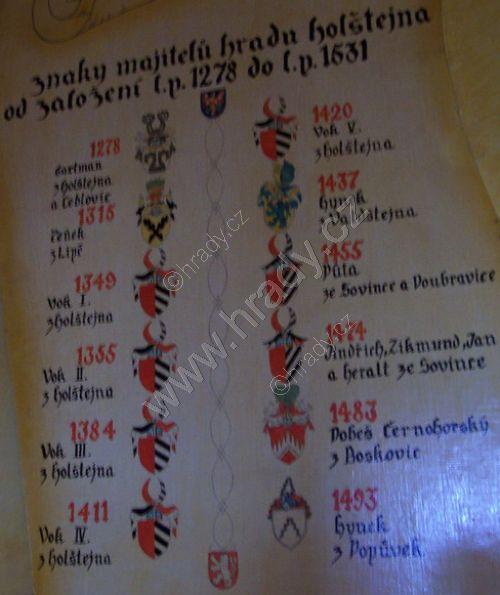 znaky majitelů hradu holštejna
od založení l.p. 1278 do l.p. 1531
1278
hartman
z holštejna
a Ceblovic
1315
Čeňek
z Lipé
1349
Vok I.
z holštejna
1355
Vok II.
z holštejna
1384
Vok III.
z holštejna
1411
Vok IV.
z holštejna
1420
Vok V.
z holštejna
1437
hynek
z Valdštejna
1455
Půta
ze Sovince a Doubravice
1474
Jindřich, Zikmund, Jan
a heralt ze Sovince
1483
Dobeš Černohorský
z Boskovic
1493
hynek
z Popůvek
©hrady.cz
www.hrady.cz
©hrady.cz
©hrady.cz
©hrady.cz